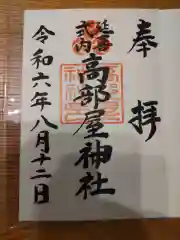 奉拝
延喜
式内
高部屋神社
令和六年八月十二日